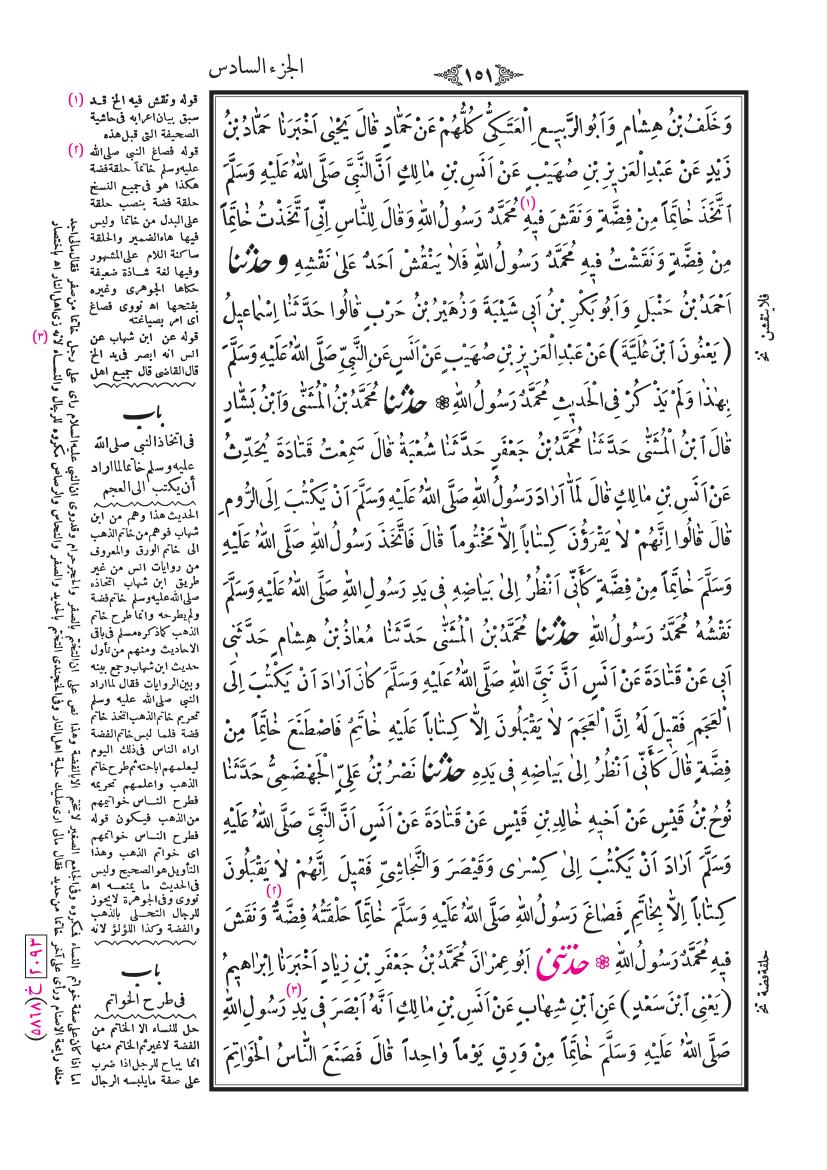 الجزء السادس
١٥١
وَخَلَفُ بْنُ هِشَامٍ وَاَبُو الرَّبِيعِ الْعَتَكِيُّ كُلُّهُمْ عَنْ حَمَّادٍ قَالَ يَحْيٰى اَخْبَرَنَا حَمَّادُ بْنُ
زَيْدٍ عَنْ عَبْدِ الْعَزِيزِ بْنِ صُهَيْبٍ عَنْ اَنَسِ بْنِ مَالِكٍ اَنَّ النَّبِيَّ صَلَّى اللهُ عَلَيْهِ وَسَلَّمَ
اَتَّخَذَ خَاتَمًا مِنْ فِضَّةٍ وَنَقَشَ (١) فِيهِ مُحَمَّدٌ رَسُولُ اللهِ وَقَالَ لِلنَّاسِ اِنِّى اَتَّخَذْتُ خَاتَمًا
مِنْ فِضَّةٍ وَنَقَشْتُ فِيهِ مُحَمَّدٌ رَسُولُ اللهِ فَلَا يَنْقُشْ اَحَدٌ عَلٰى نَقْشِهِ وَحَدَّثَنَا
اَحْمَدُ بْنُ حَنْبَلٍ وَاَبُو بَكْرِ بْنُ اَبِى شَيْبَةَ وَزُهَيْرُ بْنُ حَرْبٍ قَالُوا حَدَّثَنَا اِسْمَاعِيلُ
(يَعْنُونَ ابْنَ عُلَيَّةَ) عَنْ عَبْدِ الْعَزِيزِ بْنِ صُهَيْبٍ عَنْ اَنَسٍ عَنِ النَّبِيِّ صَلَّى اللهُ عَلَيْهِ وَسَلَّمَ
بِهٰذَا وَلَمْ يَذْكُرْ فِى الْحَدِيثِ مُحَمَّدٌ رَسُولُ اللهِ ❀ حَدَّثَنَا مُحَمَّدُ بْنُ الْمُثَنّٰى وَابْنُ بَشَّارٍ
قَالَ ابْنُ الْمُثَنّٰى حَدَّثَنَا مُحَمَّدُ بْنُ جَعْفَرٍ حَدَّثَنَا شُعْبَةُ قَالَ سَمِعْتُ قَتَادَةَ يُحَدِّثُ
عَنْ اَنَسِ بْنِ مَالِكٍ قَالَ لَمَّا اَرَادَ رَسُولُ اللهِ صَلَّى اللهُ عَلَيْهِ وَسَلَّمَ اَنْ يَكْتُبَ اِلَى الرُّومِ
قَالَ قَالُوا اِنَّهُمْ لَا يَقْرَؤُنَ كِتَابًا اِلَّا مَخْتُومًا قَالَ فَاتَّخَذَ رَسُولُ اللهِ صَلَّى اللهُ عَلَيْهِ
وَسَلَّمَ خَاتَمًا مِنْ فِضَّةٍ كَاَنِّى اَنْظُرُ اِلٰى بَيَاضِهِ فِى يَدِ رَسُولِ اللهِ صَلَّى اللهُ عَلَيْهِ وَسَلَّمَ
نَقْشُهُ مُحَمَّدٌ رَسُولُ اللهِ حَدَّثَنَا مُحَمَّدُ بْنُ الْمُثَنّٰى حَدَّثَنَا مُعَاذُ بْنُ هِشَامٍ حَدَّثَنِى
اَبِى عَنْ قَتَادَةَ عَنْ اَنَسٍ اَنَّ نَبِيَّ اللهِ صَلَّى اللهُ عَلَيْهِ وَسَلَّمَ كَانَ اَرَادَ اَنْ يَكْتُبَ اِلَى
الْعَجَمِ فَقِيلَ لَهُ اِنَّ الْعَجَمَ لَا يَقْبَلُونَ اِلَّا كِتَابًا عَلَيْهِ خَاتَمٌ فَاصْطَنَعَ خَاتَمًا مِنْ
فِضَّةٍ قَالَ كَاَنِّى اَنْظُرُ اِلٰى بَيَاضِهِ فِى يَدِهِ حَدَّثَنَا نَصْرُ بْنُ عَلِيٍّ الْجَهْضَمِيُّ حَدَّثَنَا
نُوحُ بْنُ قَيْسٍ عَنْ اَخِيهِ خَالِدِ بْنِ قَيْسٍ عَنْ قَتَادَةَ عَنْ اَنَسٍ اَنَّ النَّبِيَّ صَلَّى اللهُ عَلَيْهِ
وَسَلَّمَ اَرَادَ اَنْ يَكْتُبَ اِلٰى كِسْرٰى وَقَيْصَرَ وَالنَّجَاشِيِّ فَقِيلَ اِنَّهُمْ لَا يَقْبَلُونَ
كِتَابًا اِلَّا بِخَاتَمٍ فَصَاغَ رَسُولُ اللهِ صَلَّى اللهُ عَلَيْهِ وَسَلَّمَ خَاتَمًا حَلْقَتُهُ (٢) فِضَّةٌ وَنَقَشَ
فِيهِ مُحَمَّدٌ رَسُولُ اللهِ ❀ حَدَّثَنِى اَبُو عِمْرَانَ مُحَمَّدُ بْنُ جَعْفَرِ بْنِ زِيَادٍ اَخْبَرَنَا اِبْرَاهِيمُ
(يَعْنِى ابْنَ سَعْدٍ) عَنِ ابْنِ شِهَابٍ عَنْ اَنَسِ بْنِ مَالِكٍ اَنَّهُ اَبْصَرَ فِى يَدِ (٣) رَسُولِ اللهِ
صَلَّى اللهُ عَلَيْهِ وَسَلَّمَ خَاتَمًا مِنْ وَرِقٍ يَوْمًا وَاحِدًا قَالَ فَصَنَعَ النَّاسُ الْخَوَاتِمَ
فلا ينقشن نخ
حلقة فضة نخ
(١) قوله ونقش فيه الخ قد
سبق بيان اعرابه فى حاشية
الصحيفة التى قبل هذه
(٢) قوله فصاغ النبى صلى الله
عليه وسلم خاتما حلقة فضة
هكذا هو فى جميع النسخ
حلقة فضة بنصب حلقة
على البدل من خاتما وليس
فيها هاء الضمير والحلقة
ساكنة اللام على المشهور
وفيها لغة شاذة ضعيفة
حكاها الجوهرى وغيره
بفتحها اه نووى فصاغ
أى امر بصياغته
(٣) قوله عن ابن شهاب عن
انس انه ابصر فى يد الخ
قال القاضى قال جميع اهل
باب
فى اتخاذ النبى صلى الله
عليه وسلم خاتما لما اراد
أن يكتب الى العجم
الحديث هذا وهم من ابن
شهاب فوهم من خاتم الذهب
الى خاتم الورق والمعروف
من روايات انس من غير
طريق ابن شهاب اتخاذه
صلى الله عليه وسلم خاتم فضة
ولم يطرحه وانما طرح خاتم
الذهب كما ذكره مسلم فى باقى
الاحاديث ومنهم من تأول
حديث ابن شهاب وجمع بينه
وبين الروايات فقال لما اراد
النبى صلى الله عليه وسلم
تحريم خاتم الذهب اتخذ خاتم
فضة فلما لبس خاتم الفضة
اراه الناس فى ذلك اليوم
ليعلمهم اباحته ثم طرح خاتم
الذهب واعلمهم تحريمه
فطرح الناس خواتيمهم
من الذهب فيكون قوله
فطرح الناس خواتمهم
اى خواتم الذهب وهذا
التأويل هو الصحيح وليس
فى الحديث ما يمنعه اه
نووى وفى الجوهرة لايجوز
للرجال التحلى بالذهب
والفضة وكذا اللؤلؤ لانه
باب
فى طرح الخواتم
حل للنساء الا الخاتم من
الفضة لاغير ثم الخاتم منها
انما يباح للرجل اذا ضرب
على صفة ما يلبسه الرجال
اما اذا كان على صفة خواتم النساء فمكروه وفى الجامع الصغير لا تختم الا بالفضة وهذا نص على ان التختم بالصفر والحجر حرام وقد روى ان النبى عليه السلام رأى على رجل خاتما من صفر فقال مالى اجد
منك رائحة الاصنام ورأى على آخر خاتما من حديد فقال مالى ارى عليك حلية اهل النار وفى الخجندى التختم بالحديد والصفر والنحاس والرصاص مكروه للرجال والنساء لانه زى اهل النار اه باختصار
٢٠٩٣